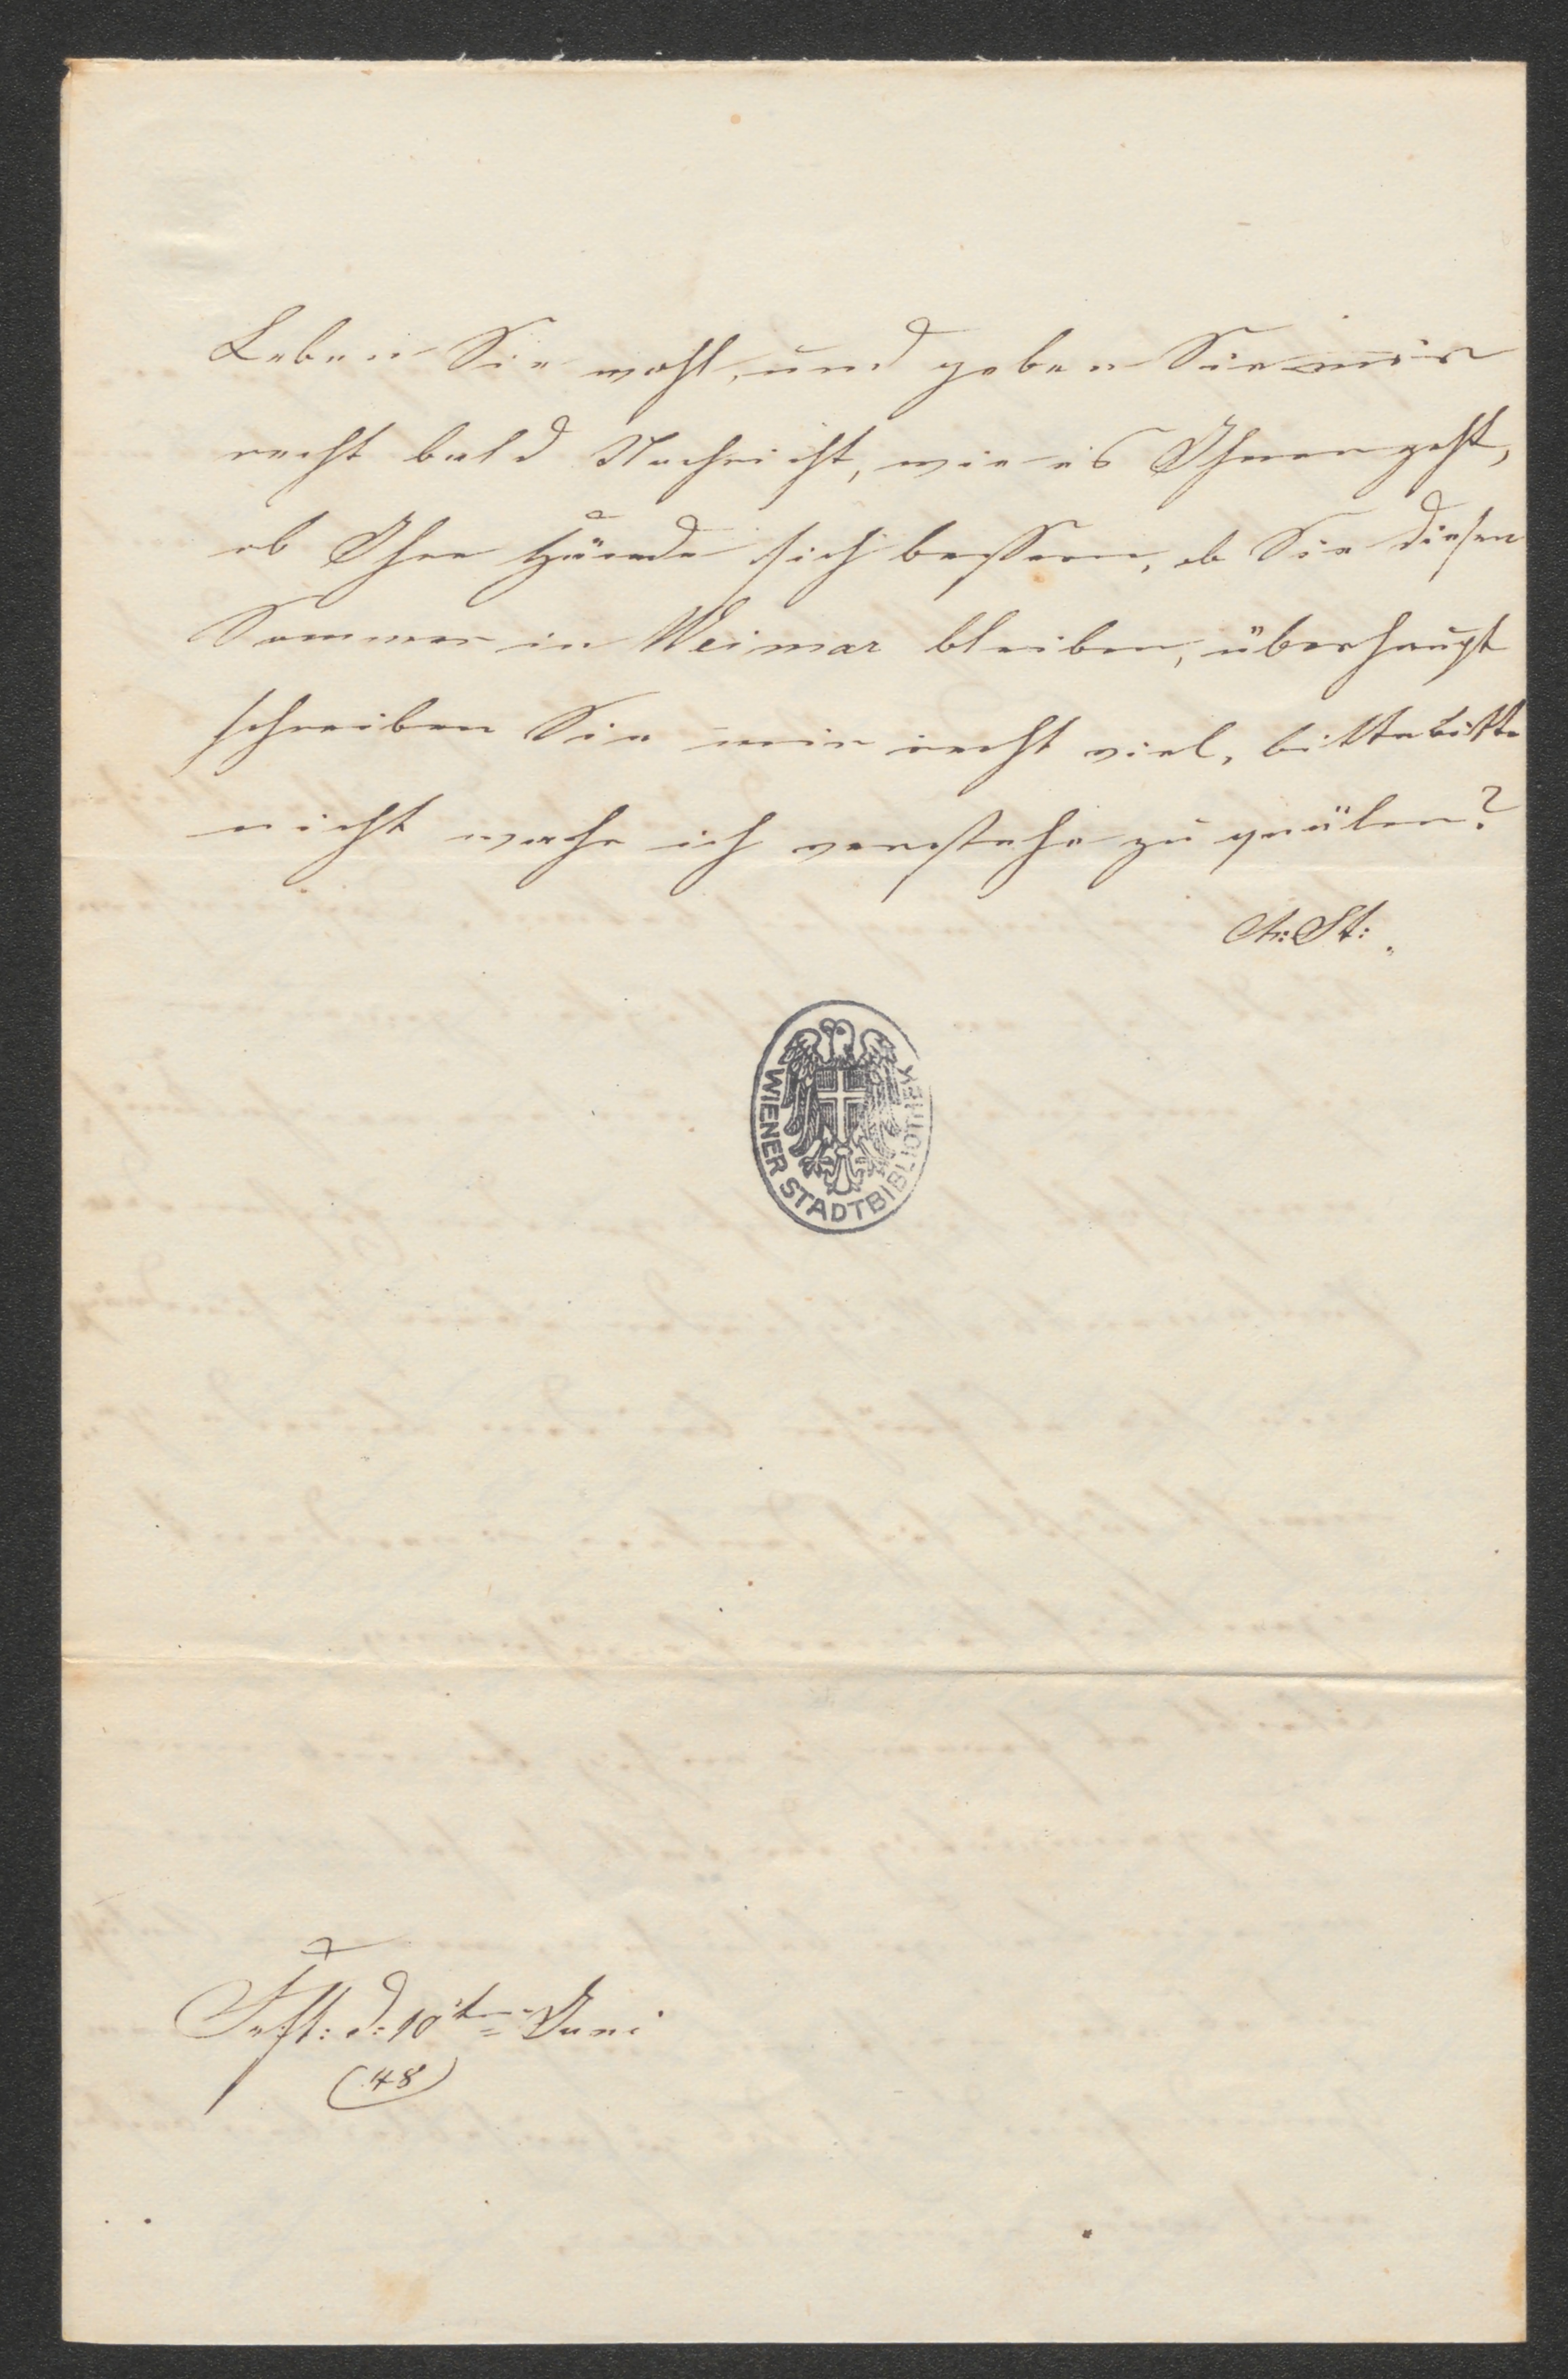 Leben Sie wohl, und geben Sie mir
recht bald Nachricht, wie es Ihnen geht,
ob Ihre Hände sich bessern, ob Sie diesen
Sommer in Weimar bleiben, überhaupt
schreiben Sie mir recht viel, bitte bitte
nicht wahr ich verstehe zu quälen?
A: St:
WIENER STADTBIBLIOTHEK
d: 10ten Juni
(48)